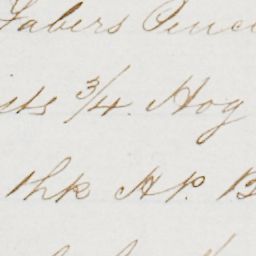 Fabers Penci
sts 3/4. Hog
1hk HP. B